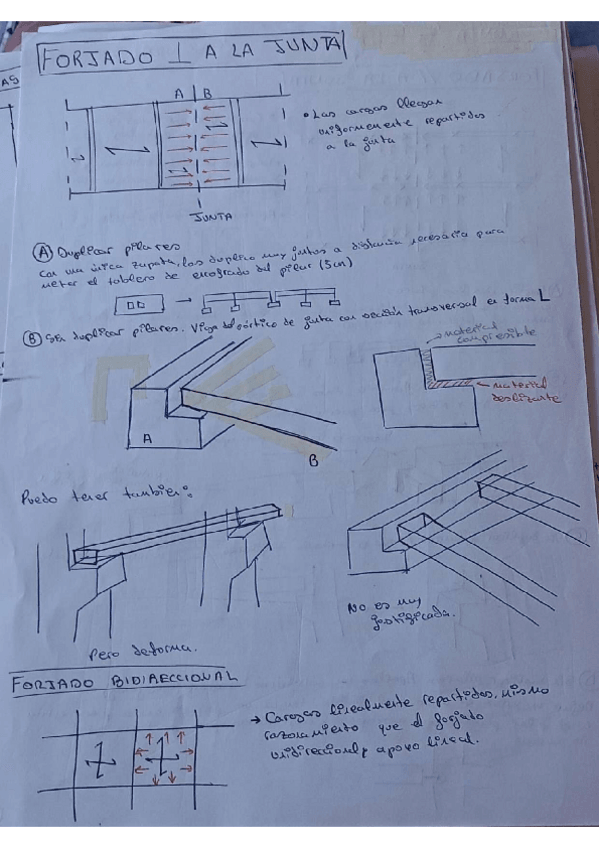 AS
FORJADO ⊥ A LA JUNTA
A B
• Las cargas llegan
uniformemente repartidas
a la junta
JUNTA
(A) Duplicar pilares
con una única zapata, los duplico muy juntos a distancia necesaria para
meter el tablero de encofrado del pilar (5cm)
(B) Sin duplicar pilares. Viga del pórtico de junta con sección transversal en forma L
material
compresible
material
deslizante
A
B
Puedo tener también:
No es muy
justificada.
Pero deforma.
FORJADO BIDIRECCIONAL
→ Cargas linealmente repartidas, mismo
razonamiento que el forjado
unidireccional y apoyo lineal.